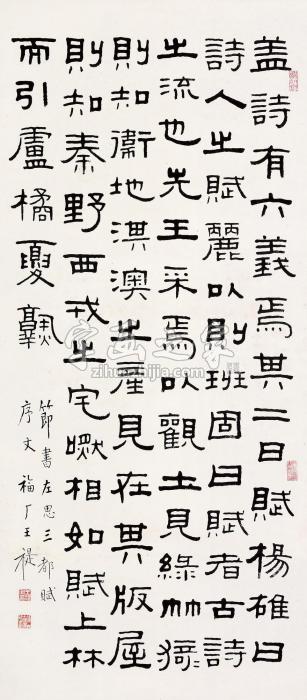 盖詩有六義焉其二曰賦楊雄曰
詩人之賦麗以則班固曰賦者古詩
之流也先王采焉以觀土見綠竹猗
則知衞地淇澳之產見在其版屋
則知秦野西戎之宅嘫相如賦上林
而引盧橘夏孰
節書左思三都賦
序文 福厂王禔
字画之家